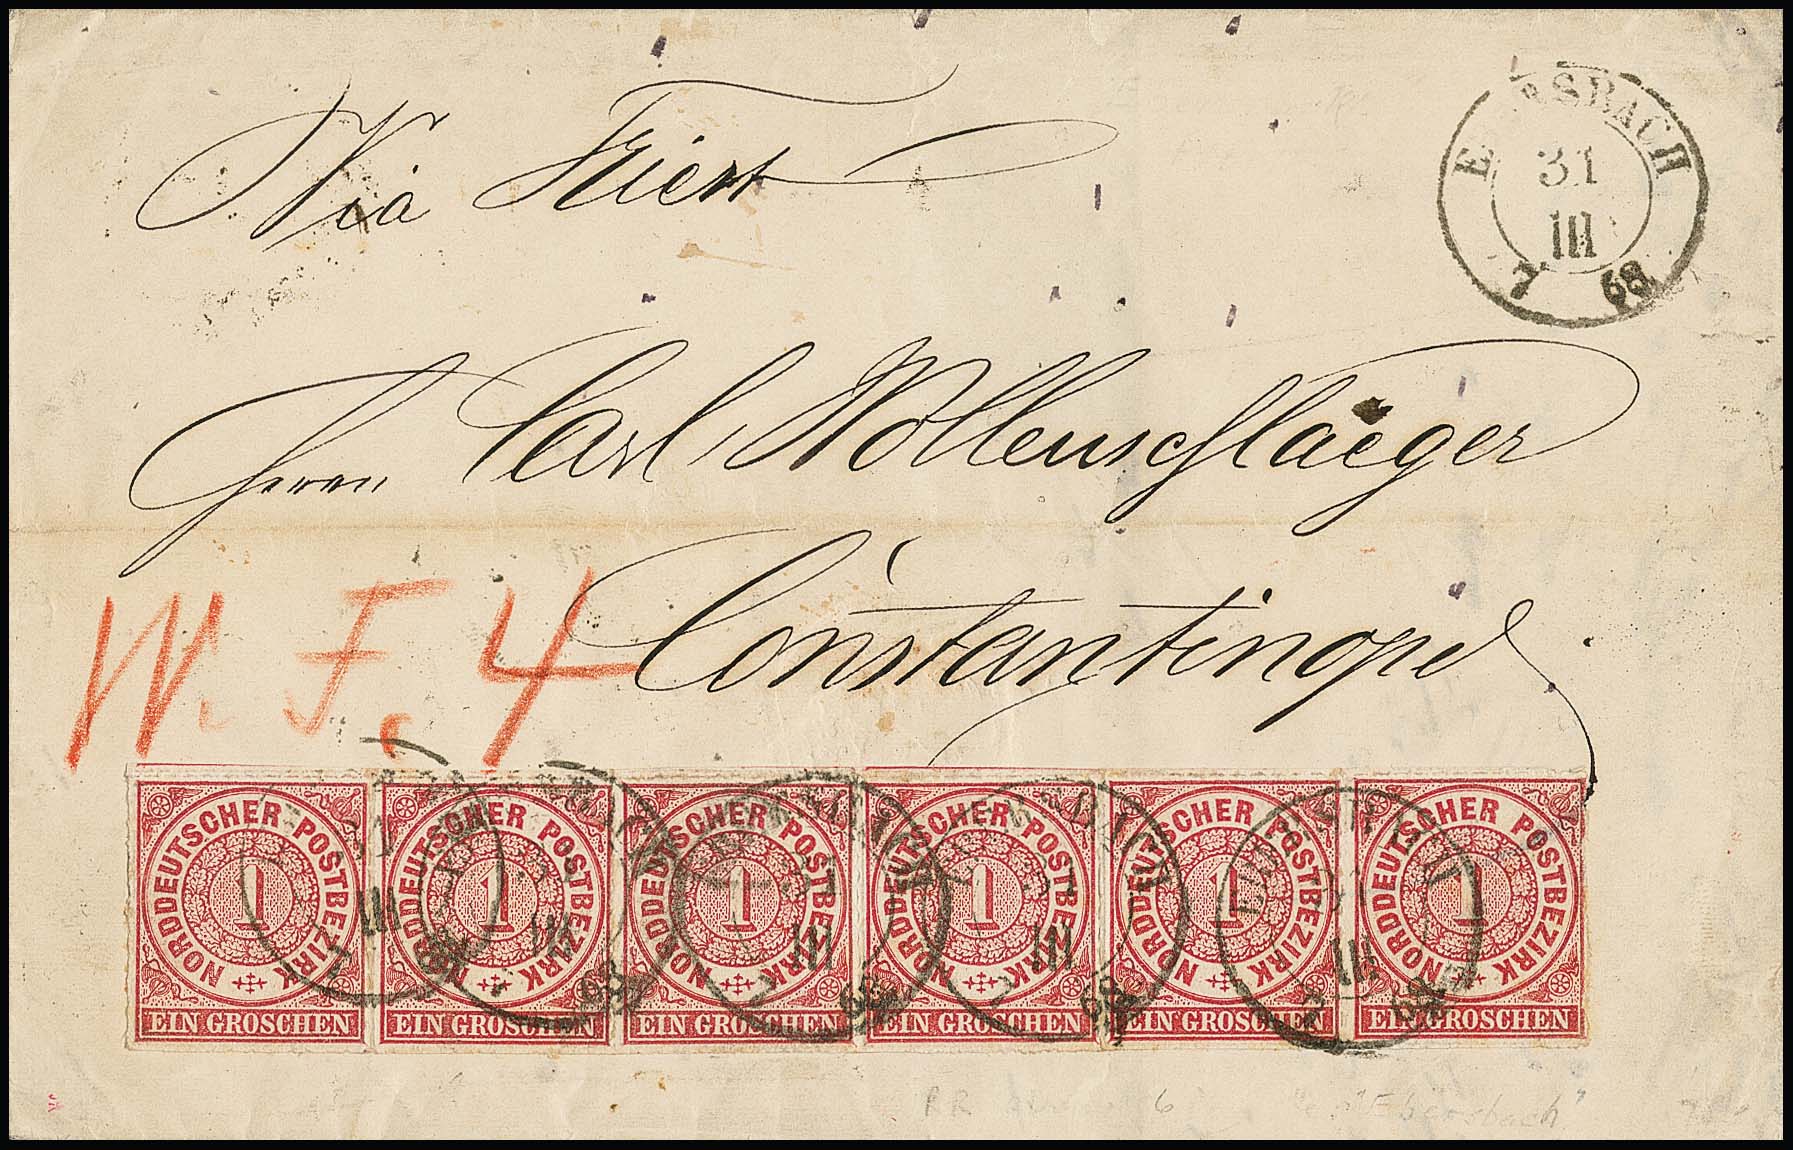 Via Triest
EBERSBACH
31
III
7 68
Herrn Carl Wollenschlaeger
Constantinopel
W. F. 4
NORDDEUTSCHER POSTBEZIRK NORDDEUTSCHER POSTBEZIRK NORDDEUTSCHER POSTBEZIRK NORDDEUTSCHER POSTBEZIRK NORDDEUTSCHER POSTBEZIRK NORDDEUTSCHER POSTBEZIRK
1 1 1 1 1 1
EIN GROSCHEN EIN GROSCHEN EIN GROSCHEN EIN GROSCHEN EIN GROSCHEN EIN GROSCHEN
RR 6 "Ebersbach"